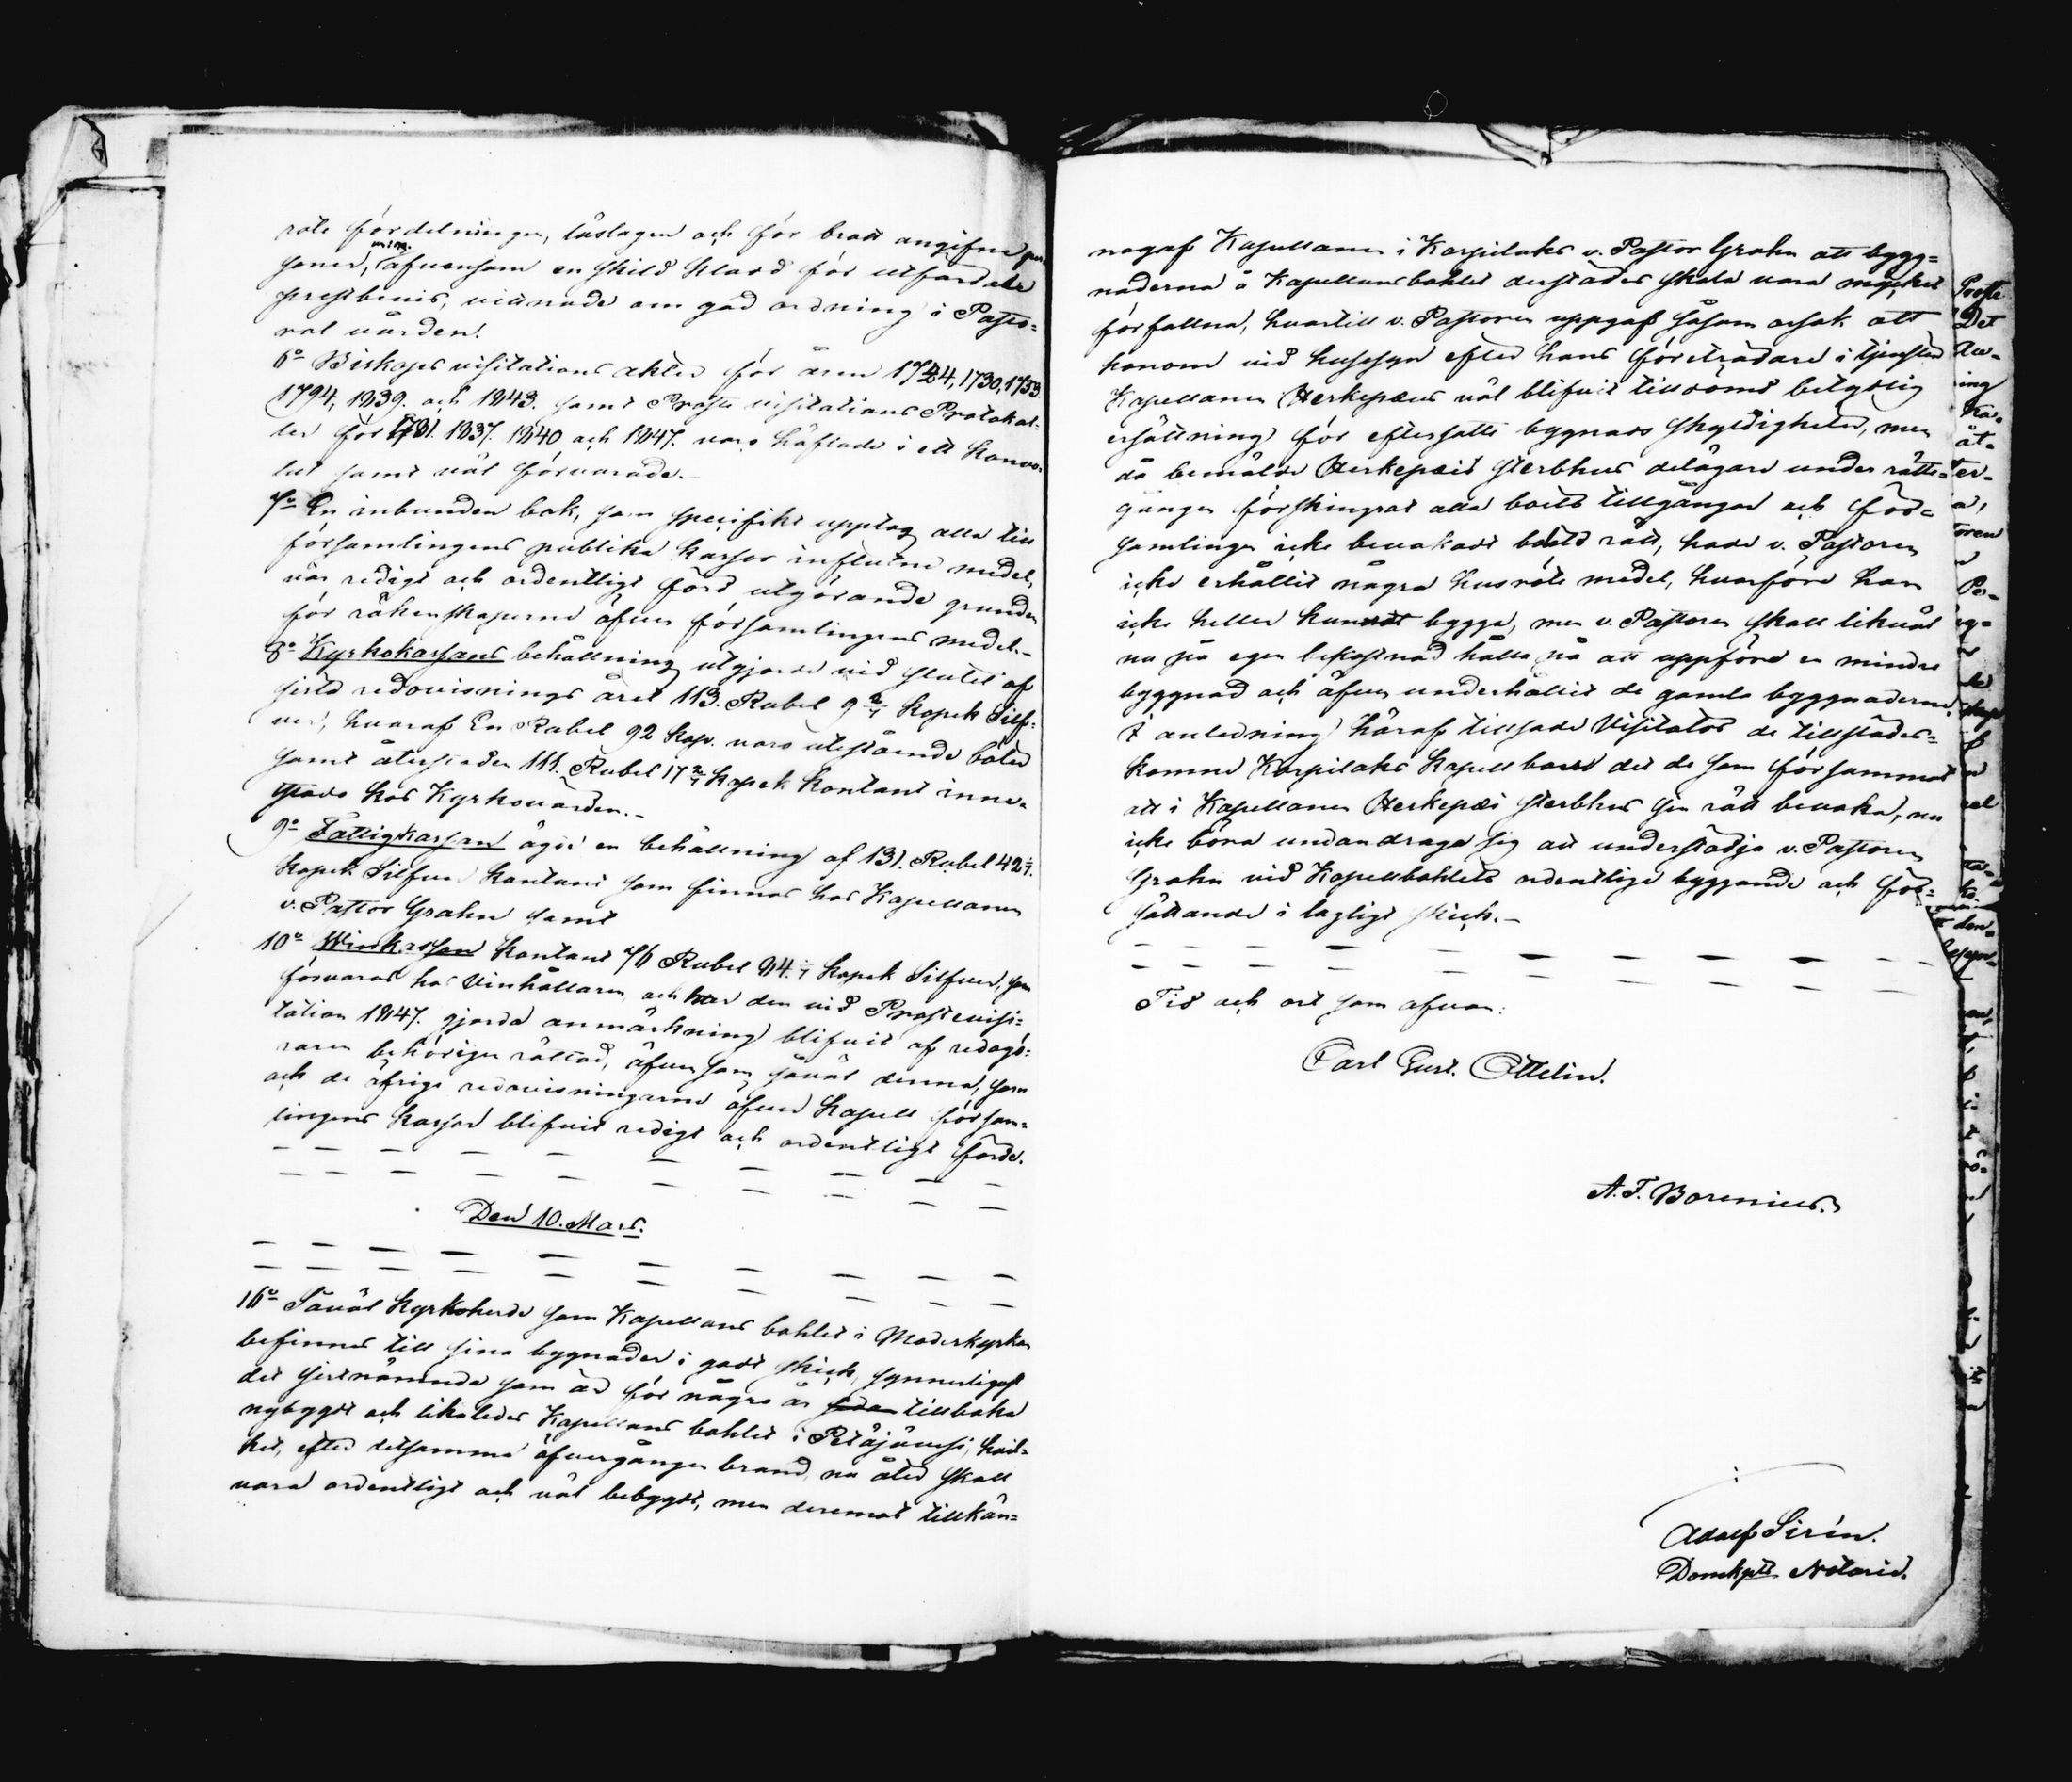 rote fördelningen, låslagen och för brott angifne per-
soner, äfvensom en skild Klord för utfärdade
prestbevis, vittnade om god ordning i Pasto-
ral vården.
6o Biskops visitations akter för åren 1724, 1730, 1753.
1794, 1839. och 1843. samt Prosts visitations Protokol-
ler för 1731. 1837. 1840 och 1847. voro häftade i ett Konvo-
lut samt väl förvarade.-
7o En inbunden bok, som specifikt upptog alla till
församlingens publika kassor influtne medel,
var redigt och ordentligt förd utgörande grunden
för räkenskaperne öfver församlingens medel.-
8o Kyrkokassans behållning utgjorde vid slutet af
sista redovisnings året 113. Rubel 9 2/7 kopek Silf-
ver, hvaraf En Rubel 92 kop. voro utestående böter
samt återstoden 111. Rubel 17 2/7 kopek kontant inne-
stodo hos Kyrkovärden.-
9o Fattigkassan ägde en behållning af 131. Rubel 42 4/7.
kopek Silfver kontant som finnes hos Kapellanen
v. Pastor Grahn samt
10o Winkassan kontant 76 Rubel 94. 4/7 kopek Silfver, som
förvaras hos Vinhållaren, och har den vid Prostevisi-
tation 1847. gjorda anmärkning blifvit af redogö-
raren behörigen rättad, äfvensom såväl denna, som
och de öfriga redovisningarne öfver Kapell försam-
lingens kassor blifvit redigt och ordentligt förde.
Den 10. Mars.
16o Såväl Kyrkoherde som Kapellans bohlet i Moderkyrkan
befinnes till sina byggnader i godt skick, synnerligast
det sistnämnda som är för några år sedan tillbaka
nybygdt och likaledes Kapellans bohlet i Petäjävesi, hvil-
ket, efter detsamma öfvergången brand, nu åter skall
vara ordentligt och väl bebygdt, men deremot tillkän-
nagaf Kapellanen i Korpilaks v. Pastor Grahn att bygg-
naderna å Kapellansbohlet derstädes skola vara mycket
förfallna, hvartill v. Pastoren uppgaf såsom orsak att
honom vid husesyn efter hans företrädare i tjensten
Kapellanen Herkepæus väl blifvit tilldömd betydlig
ersättning för eftersatte bygnads skyldigheter, men
då bemälde Herkepæi sterbhus delägare under rätte-
gången förskingrat alla boets tillgångar och för-
samlingen icke bevakadt bohlets rätt, hade v. Pastoren
icke erhållit några husröte medel, hvarföre han
icke heller kunnat bygga, men v. Pastoren skall likväl
nu på egen bekostnad hålla på att uppföra en mindre
byggnad och äfven underhållit de gamla byggnaderne.
I anledning häraf tillsade Visitator de tillstädes-
komne Korpilaks Kapellboer det de som försummat
att i Kapellanen Herkepæi sterbhus sin rätt bevaka, nu
icke böra undandraga sig att understödja v. Pastoren
Grahn vid Kapellbohlets ordentliga byggande och för-
sättande i lagligt skick.-
Tid och ort som ofvan:
Carl Gust. Ottelin.
A. F. Borenius.
Adolf Sirén.
Domkpts Notarie.